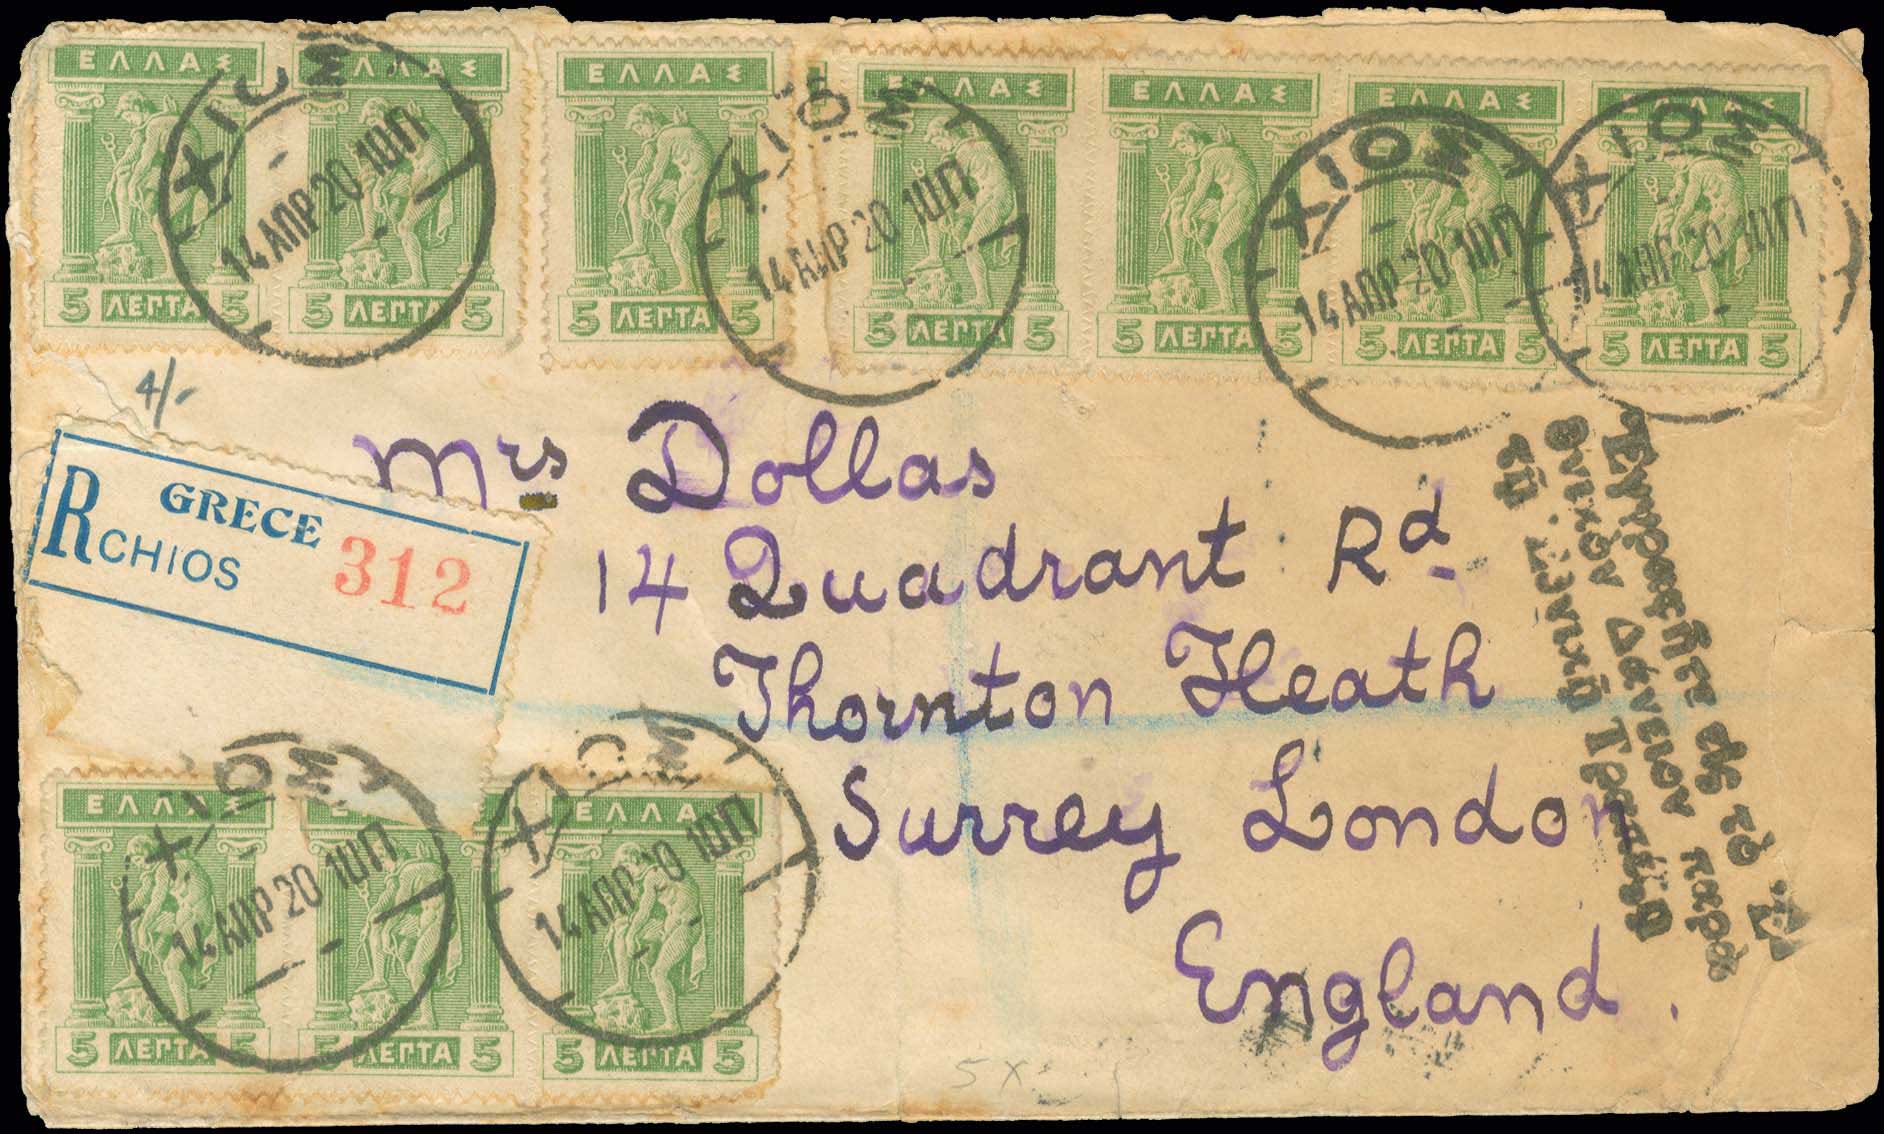 ΕΛΛΑΣ ΕΛΛΑΣ ΕΛΛΑΣ ΕΛΛΑΣ ΕΛΛΑΣ ΕΛΛΑΣ ΕΛΛΑΣ
ΧΙΟΣ ΧΙΟΣ ΧΙΟΣ ΧΙΟΣ
14 ΑΠΡ 20 1ΩΠ 14 ΑΠΡ 20 1ΩΠ 14 ΑΠΡ 20 1ΩΠ 14 ΑΠΡ 20 1ΩΠ
5 ΛΕΠΤΑ 5 5 ΛΕΠΤΑ 5 5 ΛΕΠΤΑ 5 5 ΛΕΠΤΑ 5 5 ΛΕΠΤΑ 5 5 ΛΕΠΤΑ 5 5 ΛΕΠΤΑ 5
4/-
R GRECE
CHIOS 312
Mrs Dollas
14 Quadrant Rd
Thornton Heath
Surrey London
England.
Ἐγγραφῆτε εἰς τὸ Ἐ
θνικὸν Δάνειον παρὰ
τῇ Ἐθνικῇ Τραπέζῃ
ΕΛΛΑΣ Ε ΕΛΛΑ
ΧΙΟΣ ΧΙΟΣ
14 ΑΠΡ 20 1ΩΠ 14 ΑΠΡ 20 1ΩΠ
5 ΛΕΠΤΑ 5 5 ΛΕΠΤΑ 5 5 ΛΕΠΤΑ 5